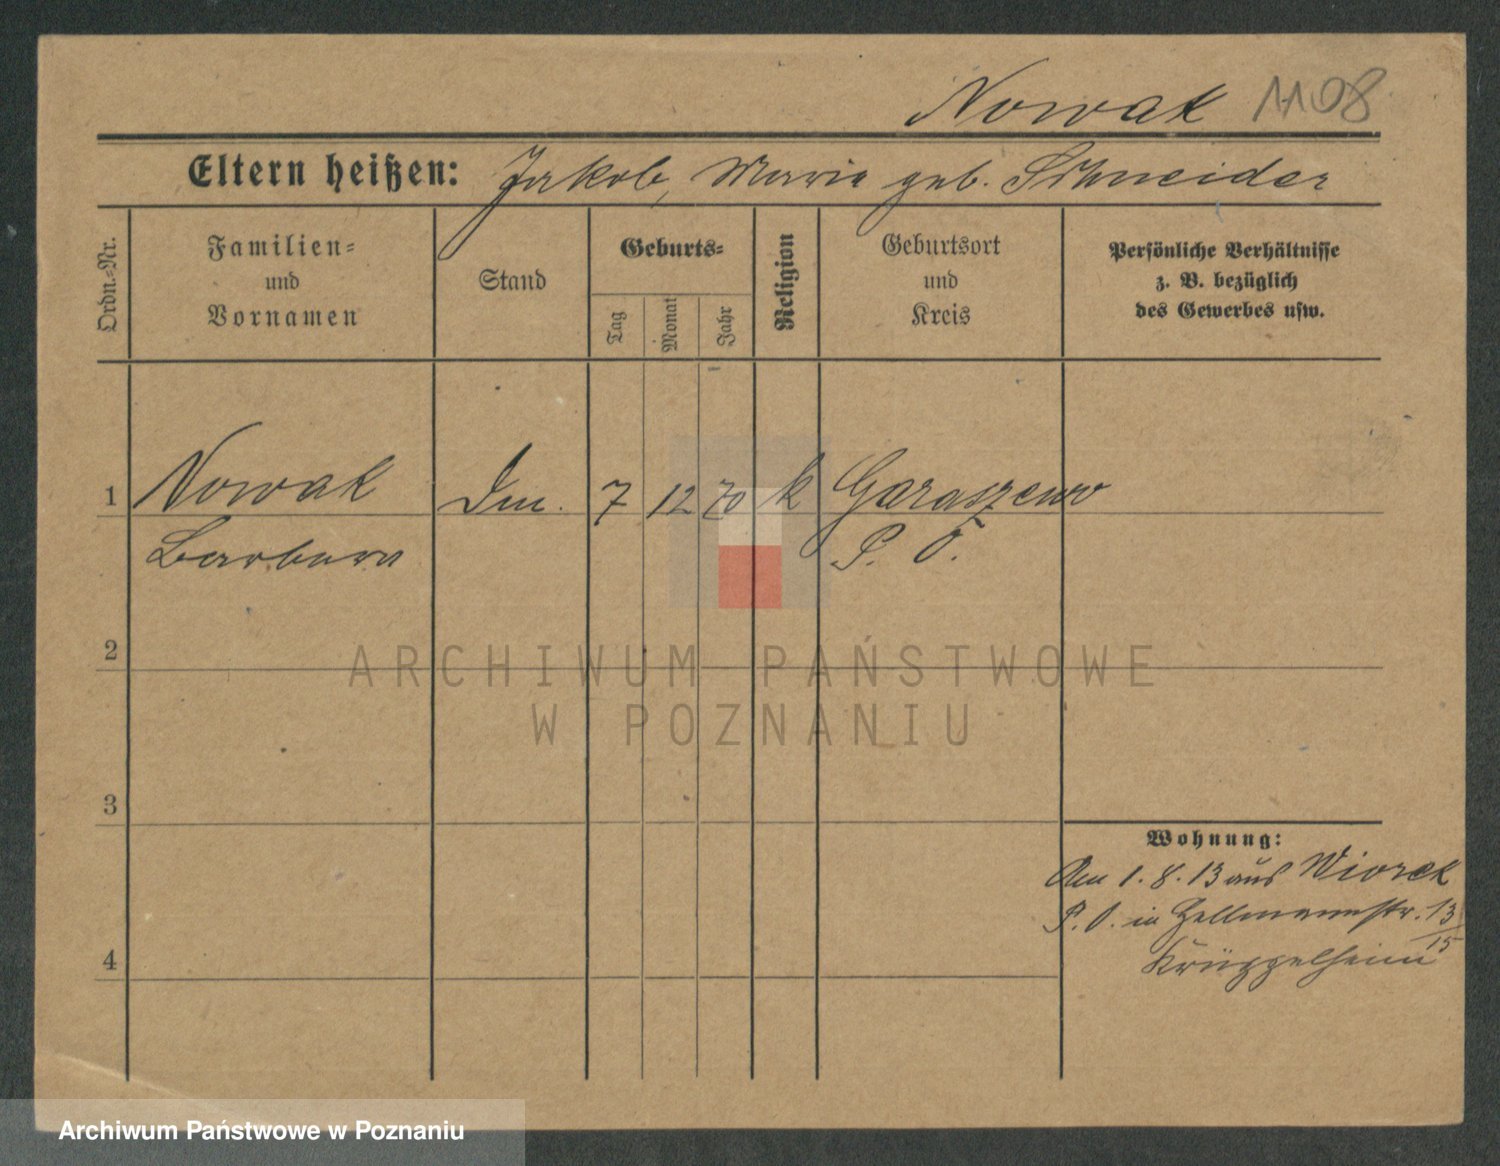 Nowak 1108
Eltern heißen: Jakob, Maria geb. Schneider
Ordn.-Nr.
Familien-
und
Vornamen
Stand
Geburts-
Tag
Monat
Jahr
Religion
Geburtsort
und
Kreis
Persönliche Verhältnisse
z. B. bezüglich
des Gewerbes usw.
1 Nowak 7 12 70 k Garaszewo
Barbara P. O.
2
3
4
Wohnung:
Am 1.8.13 aus Wiorek
P. O. in Hellmannstr. 13/15
Krüppelheim
ARCHIWUM PAŃSTWOWE
W POZNANIU
Archiwum Państwowe w Poznaniu